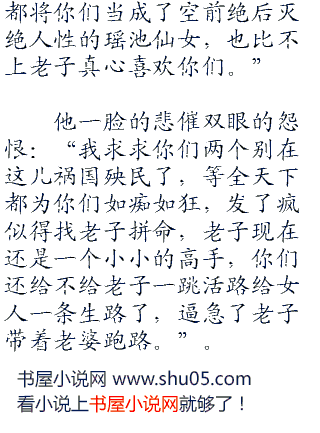 都将你们当成了空前绝后灭
绝人性的瑶池仙女，也比不
上老子真心喜欢你们。”
他一脸的悲催双眼的怨
恨：“我求求你们两个别在
这儿祸国殃民了，等全天下
都为你们如痴如狂，发了疯
似得找老子拼命，老子现在
还是一个小小的高手，你们
还给不给老子一跳活路给女
人一条生路了，逼急了老子
带着老婆跑路。”。
书屋小说网 www.shu05.com
看小说上书屋小说网就够了！